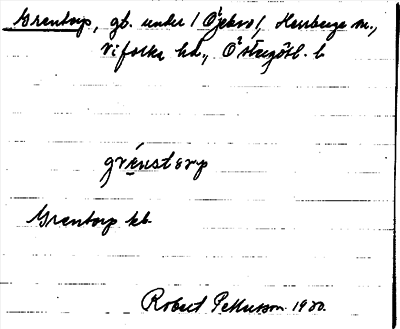 Grentorp, gd. under (Öjebro), Herrberga sn.,
Vifolka hd., Östergötl. l.
grénstərp
Grentorp kb.
Robert Pettersson 1920.